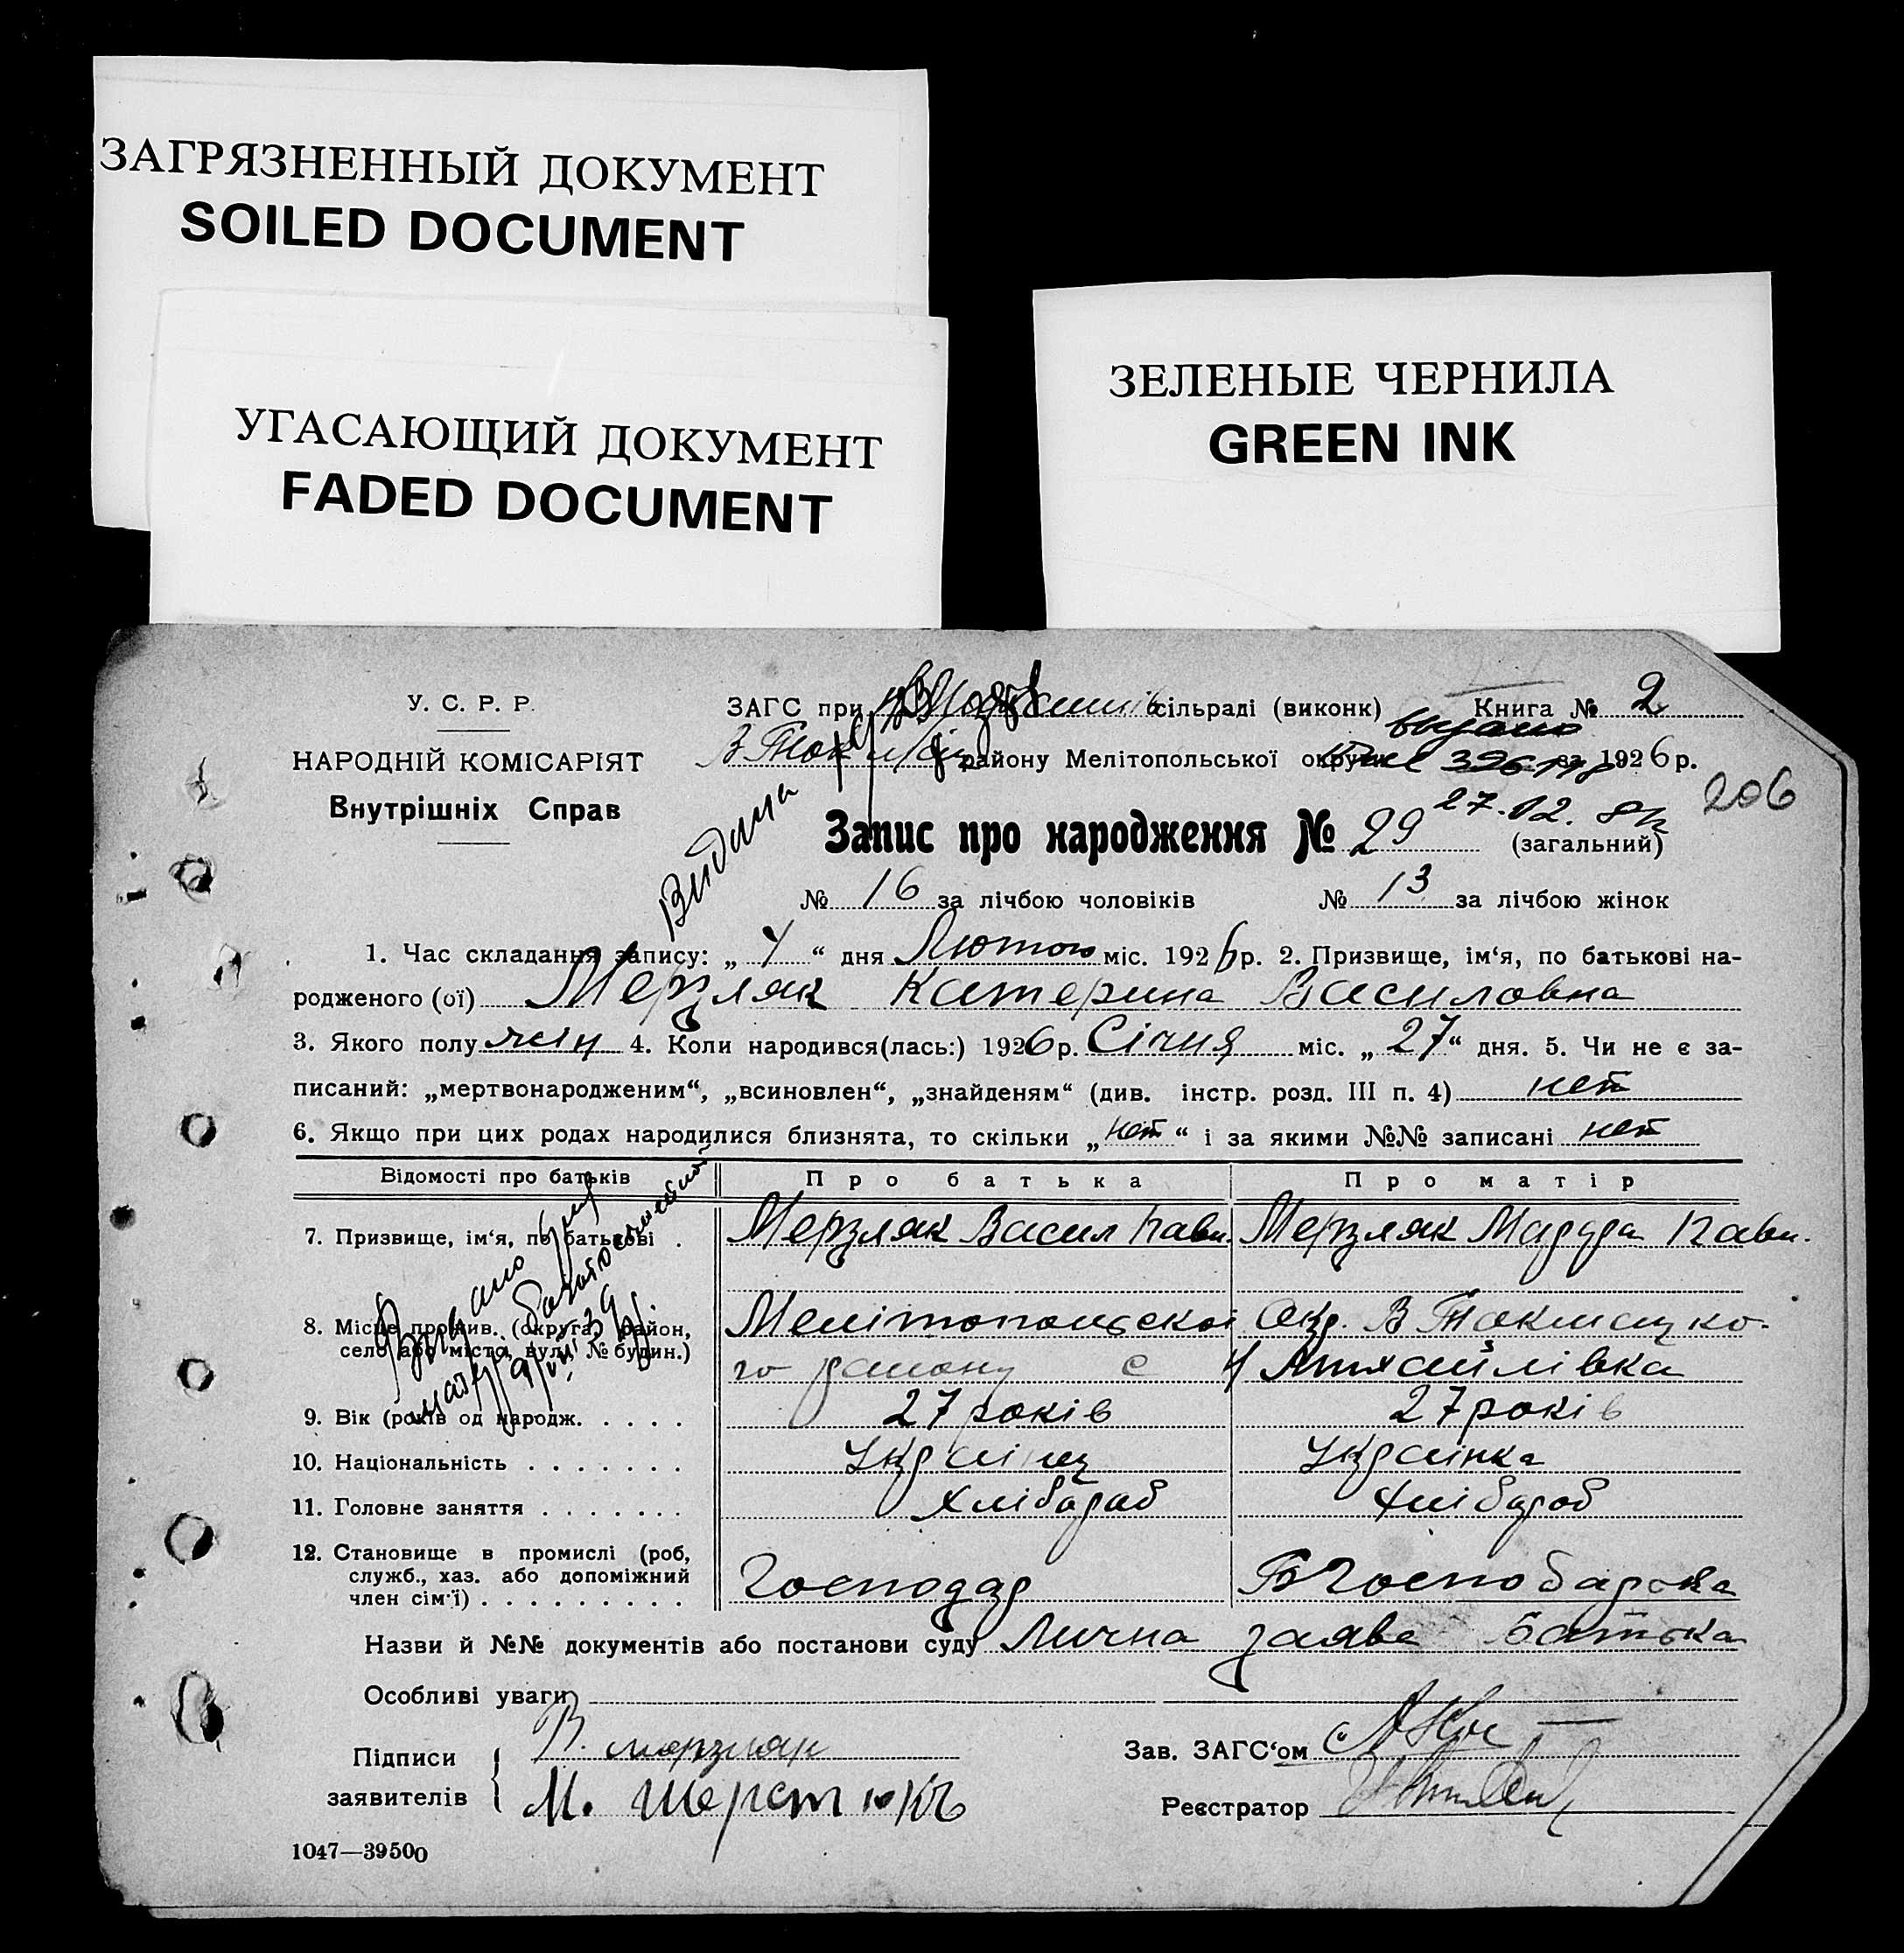 ЗАГРЯЗНЕННЫЙ ДОКУМЕНТ
SOILED DOCUMENT
УГАСАЮЩИЙ ДОКУМЕНТ
FADED DOCUMENT
ЗЕЛЕНЫЕ ЧЕРНИЛА
GREEN INK
У. С. Р. Р.
НАРОДНІЙ КОМІСАРІЯТ
Внутрішніх Справ
ЗАГС при сільраді (виконк) Книга № 2
району Мелітопольської округи за 1926 р.
выдано
27.02.
206
Видана
Запис про народження № 29 (загальний)
№ 16 за лічбою чоловіків № 13 за лічбою жінок
1. Час складання запису: „ “ дня Лютого міс. 1926 р. 2. Призвище, ім‘я, по батькові на-
родженого (ої) Мерзляк Катерина Василовна
3. Якого полу жін 4. Коли народився(лась:) 1926 р. Січня міс. „ 27 “ дня. 5. Чи не є за-
писаний: „мертвонародженим“, „всиновлен“, „знайденям“ (див. інстр. розд. III п. 4) нет
6. Якщо при цих родах народилися близнята, то скільки „ нет “ і за якими №№ записані нет
Відомості про батьків Про батька Про матір
7. Призвище, ім‘я, по батькові . Мерзляк Васил Павл. Мерзляк Павл.
8. Місце прожив. (округа, район, Мелітопольскоі Окр. В Токмацко-
село або місто, вул. № будин.) го району с
9. Вік (років од народж. . . . . 27 років 27 років
10. Національність . . . . . . . Українц Українка
11. Головне заняття . . . . . . . Хлібароб Хлібароб
12. Становище в промислі (роб,
служб., хаз. або допоміжний
член сім‘ї) . . . . . . . . . Господар
Назви й №№ документів або постанови суду Лична заява батька
Особливі уваги
Підписи
заявителів
В. Мерзляк
М.
Зав. ЗАГС‘ом
Реєстратор
1047—39500